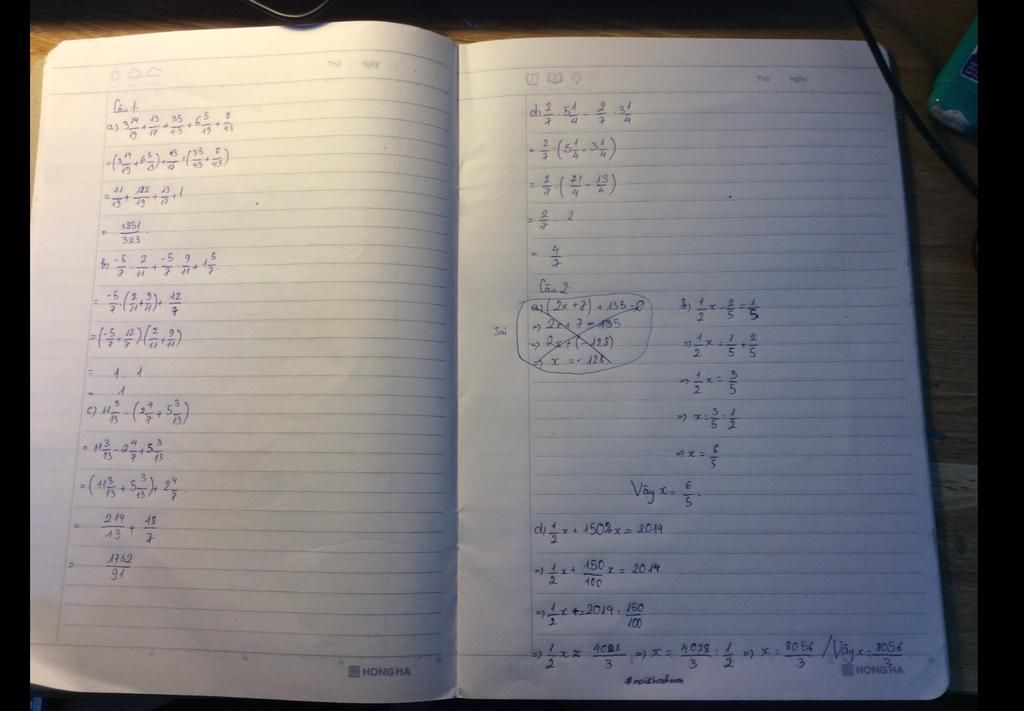 Thứ ngày
Câu 1:
a) 3 14/19 + 13/17 + 35/43 + 6 5/19 + 8/43
= (3 14/19 + 6 5/19) + 13/17 + (35/43 + 8/43)
= 71/19 + 122/19 + 13/17 + 1
= 3851/323
b) -5/7 · 2/11 + -5/7 · 9/11 + 1 5/7
= -5/7 · (2/11 + 9/11) + 12/7
= (-5/7 + 12/7) (2/11 + 9/11)
= 1 . 1
= 1
c) 11 3/13 - (2 4/7 + 5 3/13)
= 11 3/13 - 2 4/7 + 5 3/13
= (11 3/13 + 5 3/13) + 2 4/7
= 214/13 + 18/7
= 1732/91
HONG HA
Thứ ngày
d) 2/7 · 5 1/4 - 2/7 · 3 1/4
= 2/7 · (5 1/4 - 3 1/4)
= 2/7 · (21/4 - 13/4)
= 2/7 . 2
= 4/7
Câu 2:
a) (2x + 7) + 135 = 0
Sai
=> 2x + 7 = 135
=> 2x + (-128)
=> x = -128
b) 1/2 x - 2/5 = 1/5
=> 1/2 x = 1/5 + 2/5
=> 1/2 x = 3/5
=> x = 3/5 : 1/2
=> x = 6/5
Vậy x = 6/5.
d) 1/2 x + 150% x = 2014
=> 1/2 x + 150/100 x = 2014
=> 1/2 x = 2014 : 150/100
=> 1/2 x = 4028/3 => x = 4028/3 : 1/2 => x = 8056/3 / Vậy x = 8056/3
HONG HA